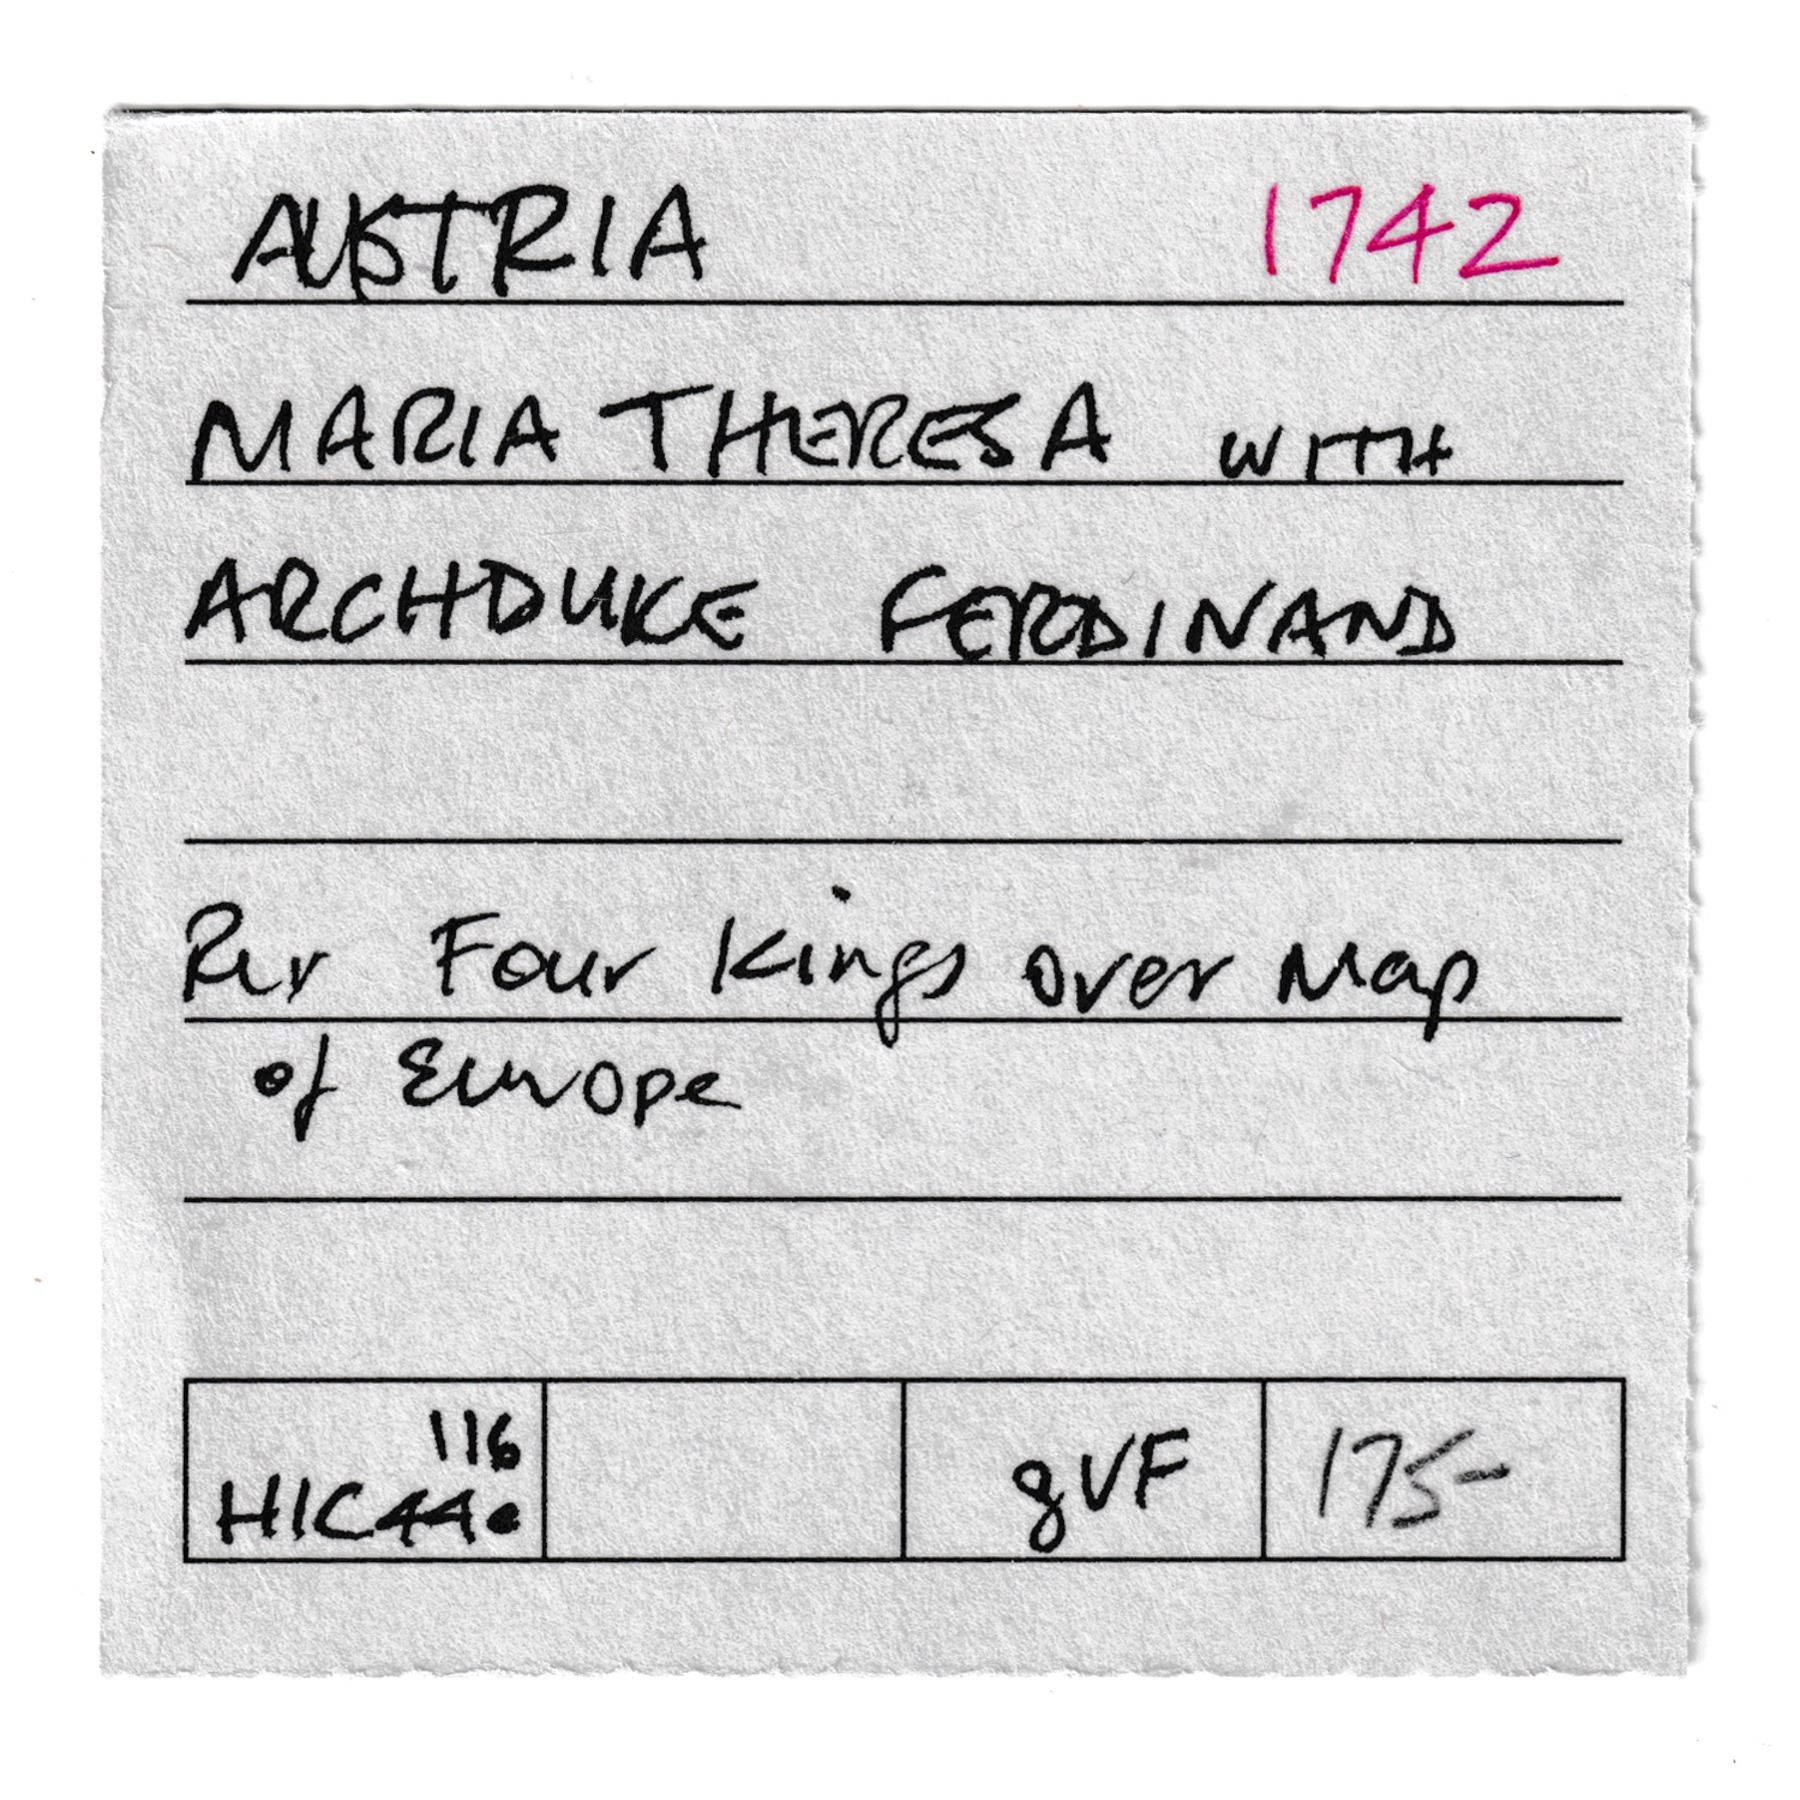 AUSTRIA 1742
MARIA THERESA WITH
ARCHDUKE FERDINAND
Rev Four Kings over Map
of Europe
116
HIC44e gVF 175-